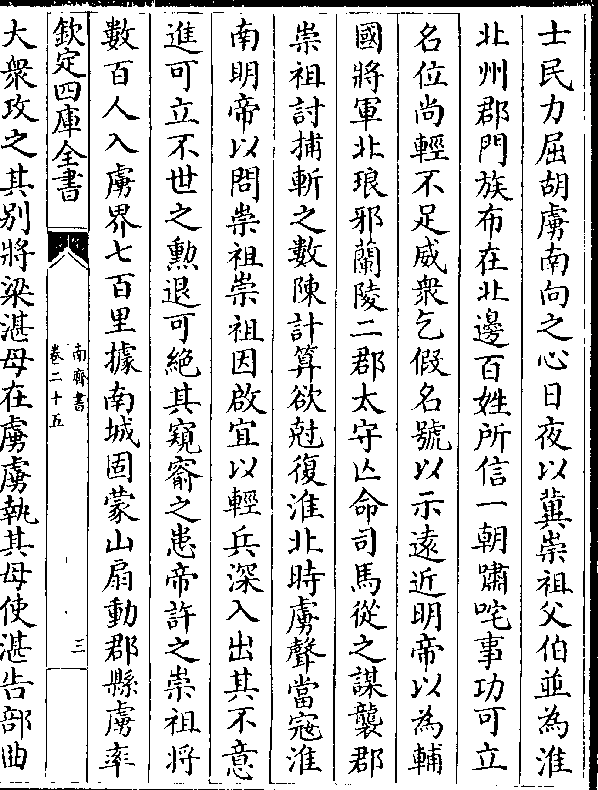 士民力屈胡虜南向之心日夜以冀崇祖父伯並為淮
北州郡門族布在北邊百姓所信一朝嘯咤事功可立
名位尚輕不足威衆乞假名號以示遠近明帝以為輔
國將軍北琅邪蘭陵二郡太守亡命司馬從之謀襲郡
崇祖討捕斬之數陳計算欲尅復淮北時虜聲當寇淮
南明帝以問崇祖崇祖因啟宜以輕兵深入出其不意
進可立不世之勲退可絕其窺窬之患帝許之崇祖將
數百人入虜界七百里據南城固蒙山扇動郡縣虜率
欽定四庫全書
南齊書
卷二十五
三
大衆攻之其别將梁湛母在虜虜執其母使湛告部曲